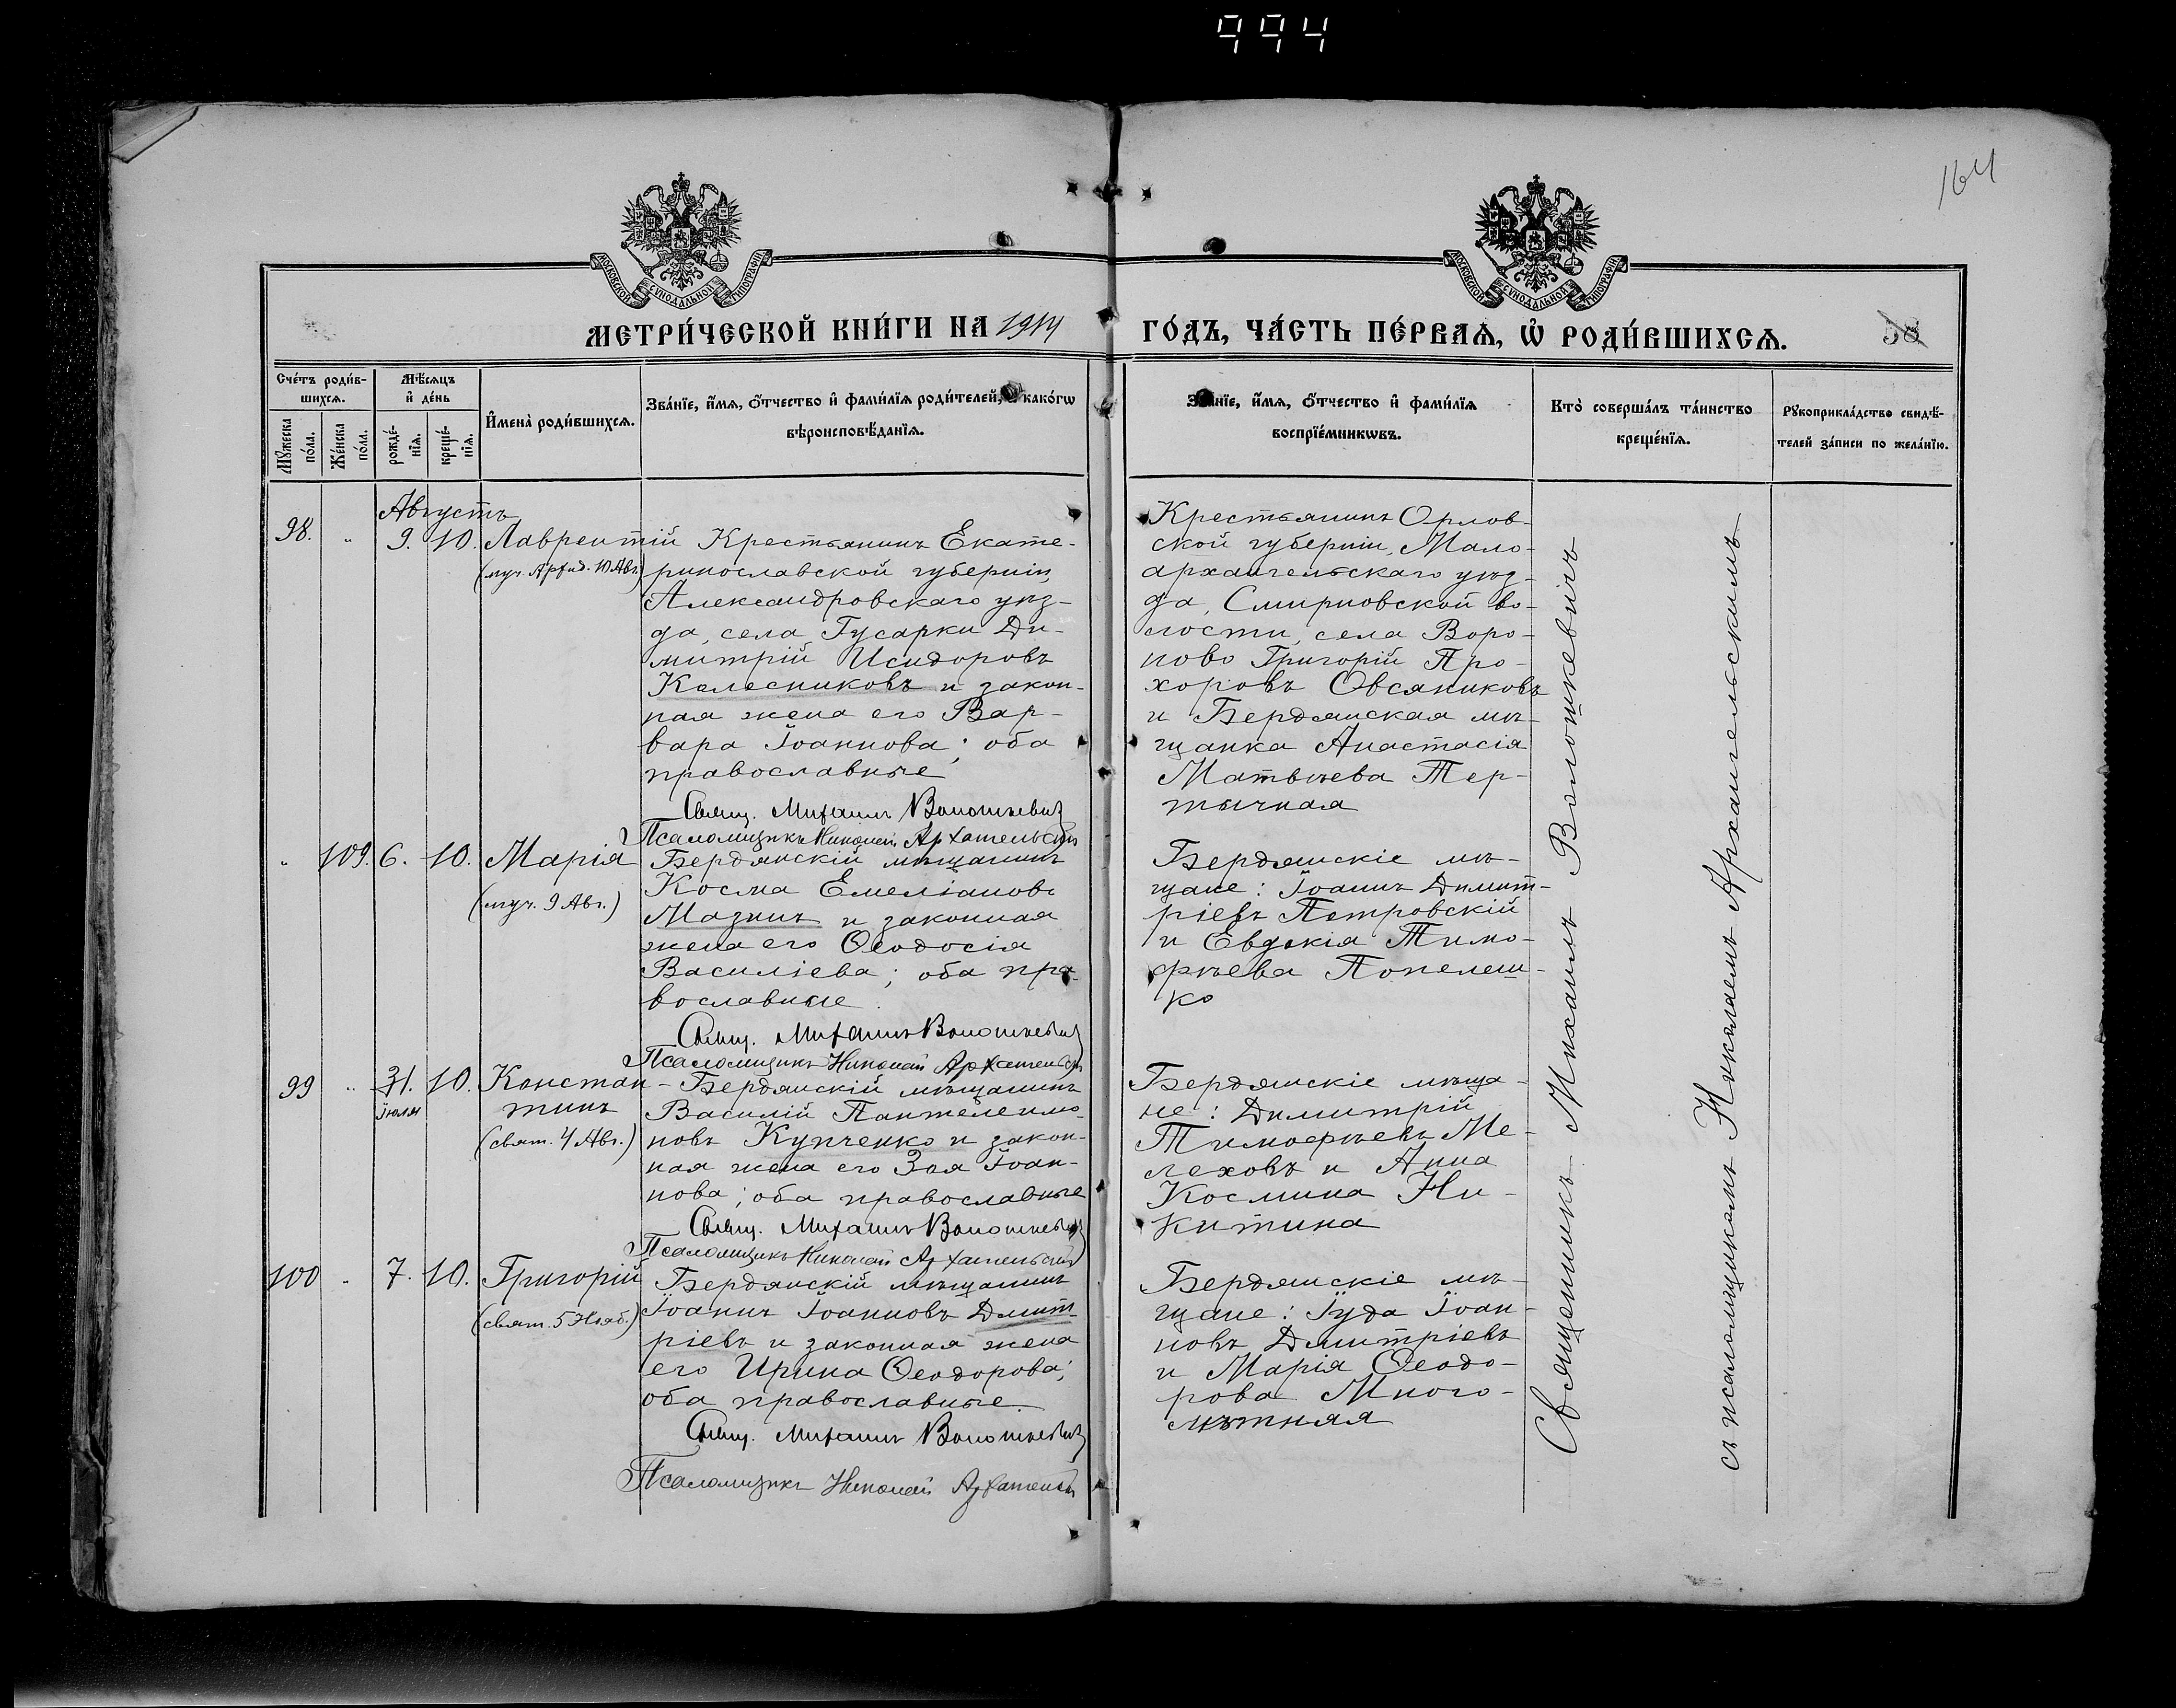 994
164
МОСКОВСКОЙ СѴНОДАЛЬНОЙ ТИПОГРАФІИ
МОСКОВСКОЙ СѴНОДАЛЬНОЙ ТИПОГРАФІИ
МЕТРИ́ЧЕСКОЙ КНИ́ГИ НА 1914
ГО́ДЪ, ЧА́СТЬ ПЕ́РВАѦ, Ѡ҆ РОДИ́ВШИХСѦ.
58
Сче́тъ роди́в-
шихсѧ.
Мꙋ́жеска
по́ла.
Же́нска
по́ла.
Мѣ́сѧцъ
и҆ де́нь
рожде́-
нїѧ.
креще́-
нїѧ.
И҆мена̀ роди́вшихсѧ.
Зва́нїе, и҆́мѧ, ѻ҆́тчество и҆ фами́лїѧ роди́телей, и҆ како́гѡ
вѣроисповѣ́данїѧ.
Зва́нїе, и҆́мѧ, ѻ҆́тчество и҆ фами́лїѧ
воспрїе́мникѡвъ.
Кто̀ соверша́лъ та́инство
креще́нїѧ.
Рꙋкоприкла́дство свидѣ́-
телей за́писи по жела́нїю.
Августъ
98. " 9. 10. Лаврентій
(муч. Архид. 10 Авг.)
Крестьянинъ Екате-
ринославской губерніи,
Александровскаго уѣз-
да, села Гусарки Ди-
митрій Исидоровъ
Колесниковъ и закон-
ная жена его Вар-
вара Іоаннова; оба
православные
Свящ. Михаилъ Волошкевичъ
Псаломщикъ Николай Архангельскій
Крестьянинъ Орлов-
ской губерніи, Мало-
архангельскаго уѣз-
да, Смирновской во-
лости, села Воро-
ново Григорій Про-
хоровъ Овсяниковъ
и Бердянская мѣ-
щанка Анастасія
Матвѣева Тер-
тычная
" 109. 6. 10. Марія
(муч. 9 Авг.)
Бердянскій мѣщанинъ
Косма Емеліановъ
Мазинъ и законная
жена его Ѳеодосія
Василіева; оба пра-
вославные.
Свящ. Михаилъ Волошкевичъ
Псаломщикъ Николай Архангельскій
Бердянскіе мѣ-
щане: Іоаннъ Димит-
ріевъ Петровскій
и Евдокія Тимо-
фѣева Попелеш-
ко
99 " 31. 10. Констан-
Іюля
тинъ
(свят. 4 Авг.)
Бердянскій мѣщанинъ
Василій Пантелеимо-
новъ Купченко и закон-
ная жена его Зоя Іоан-
нова; оба православные
Свящ. Михаилъ Волошкевичъ
Псаломщикъ Николай Архангельскій
Бердянскіе мѣща-
не: Димитрій
Тимофѣевъ Ме-
леховъ и Анна
Космина Ни-
китина
100 " 7. 10. Григорій
(свят. 5 Нояб.)
Бердянскій мѣщанинъ
Іоаннъ Іоанновъ Дмит-
ріевъ и законная жена
его Ирина Ѳеодорова;
оба православные.
Свящ. Михаилъ Волошкевичъ
Псаломщикъ Николай Архангельскій
Бердянскіе мѣ-
щане: Іуда Іоан-
новъ Дмитріевъ
и Марія Ѳеодо-
рова Много-
лѣтняя
Священникъ Михаилъ Волошкевичъ
съ псаломщикомъ Николаемъ Архангельскимъ